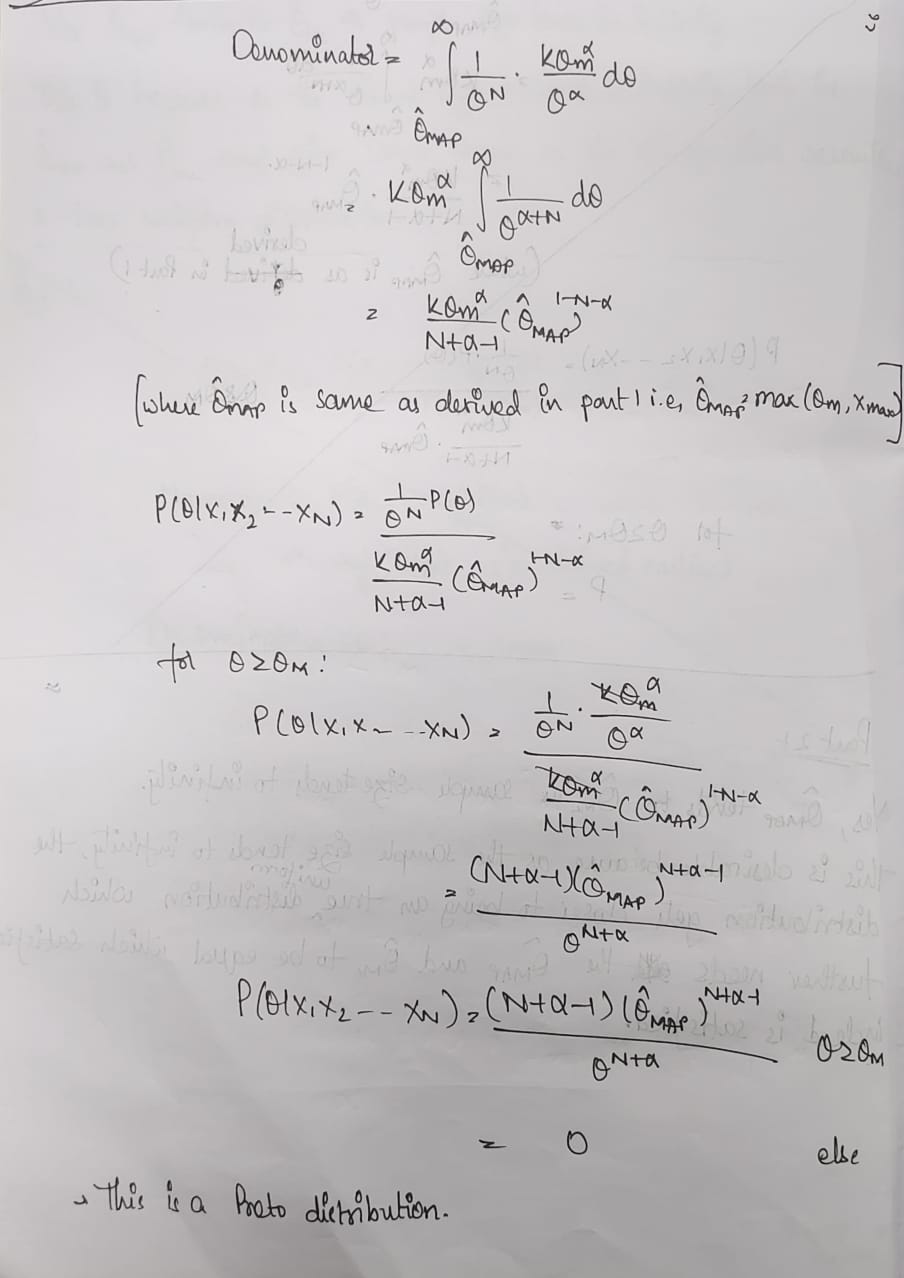 Denominator = ∫_{θ̂_MAP}^{∞} 1/θ^N · kθ_m^α/θ^α dθ
= kθ_m^α ∫_{θ̂_MAP}^{∞} 1/θ^{α+N} dθ
= kθ_m^α/(N+α-1) (θ̂_MAP)^{1-N-α}
[where θ̂_MAP is same as derived in part 1 i.e, θ̂_MAP = max(θ_m, x_max)]
P(θ|x₁x₂---x_N) = (1/θ^N P(θ)) / (kθ_m^α/(N+α-1) (θ̂_MAP)^{1-N-α})
for θ≥θ_M:
P(θ|x₁x₂---x_N) = (1/θ^N · kθ_m^α/θ^α) / (kθ_m^α/(N+α-1) (θ̂_MAP)^{1-N-α})
= (N+α-1)(θ̂_MAP)^{N+α-1} / θ^{N+α}
P(θ|x₁x₂---x_N) = (N+α-1)(θ̂_MAP)^{N+α-1} / θ^{N+α} θ≥θ_M
= 0 else
→ This is a Preto distribution.